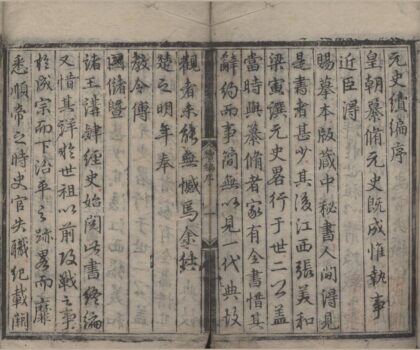 元史續編序
皇朝纂脩元史既成惟執事
近臣得
賜墓本版藏中秘書人間得見
是書者甚少其後江西張美和
梁寅譔元史畧行于世二公蓋
當時與纂脩者家有全書惜其
辭約而事簡無以見一代典故
觀者未能無憾焉余結
楚之明年奉
教令傅
國儲暨
諸王講肄經史始閱此書終編
又惜其詳於世祖以前攻戰之事
於成宗而下治平之跡畧而靡
悉順帝之時史官失職紀載闕